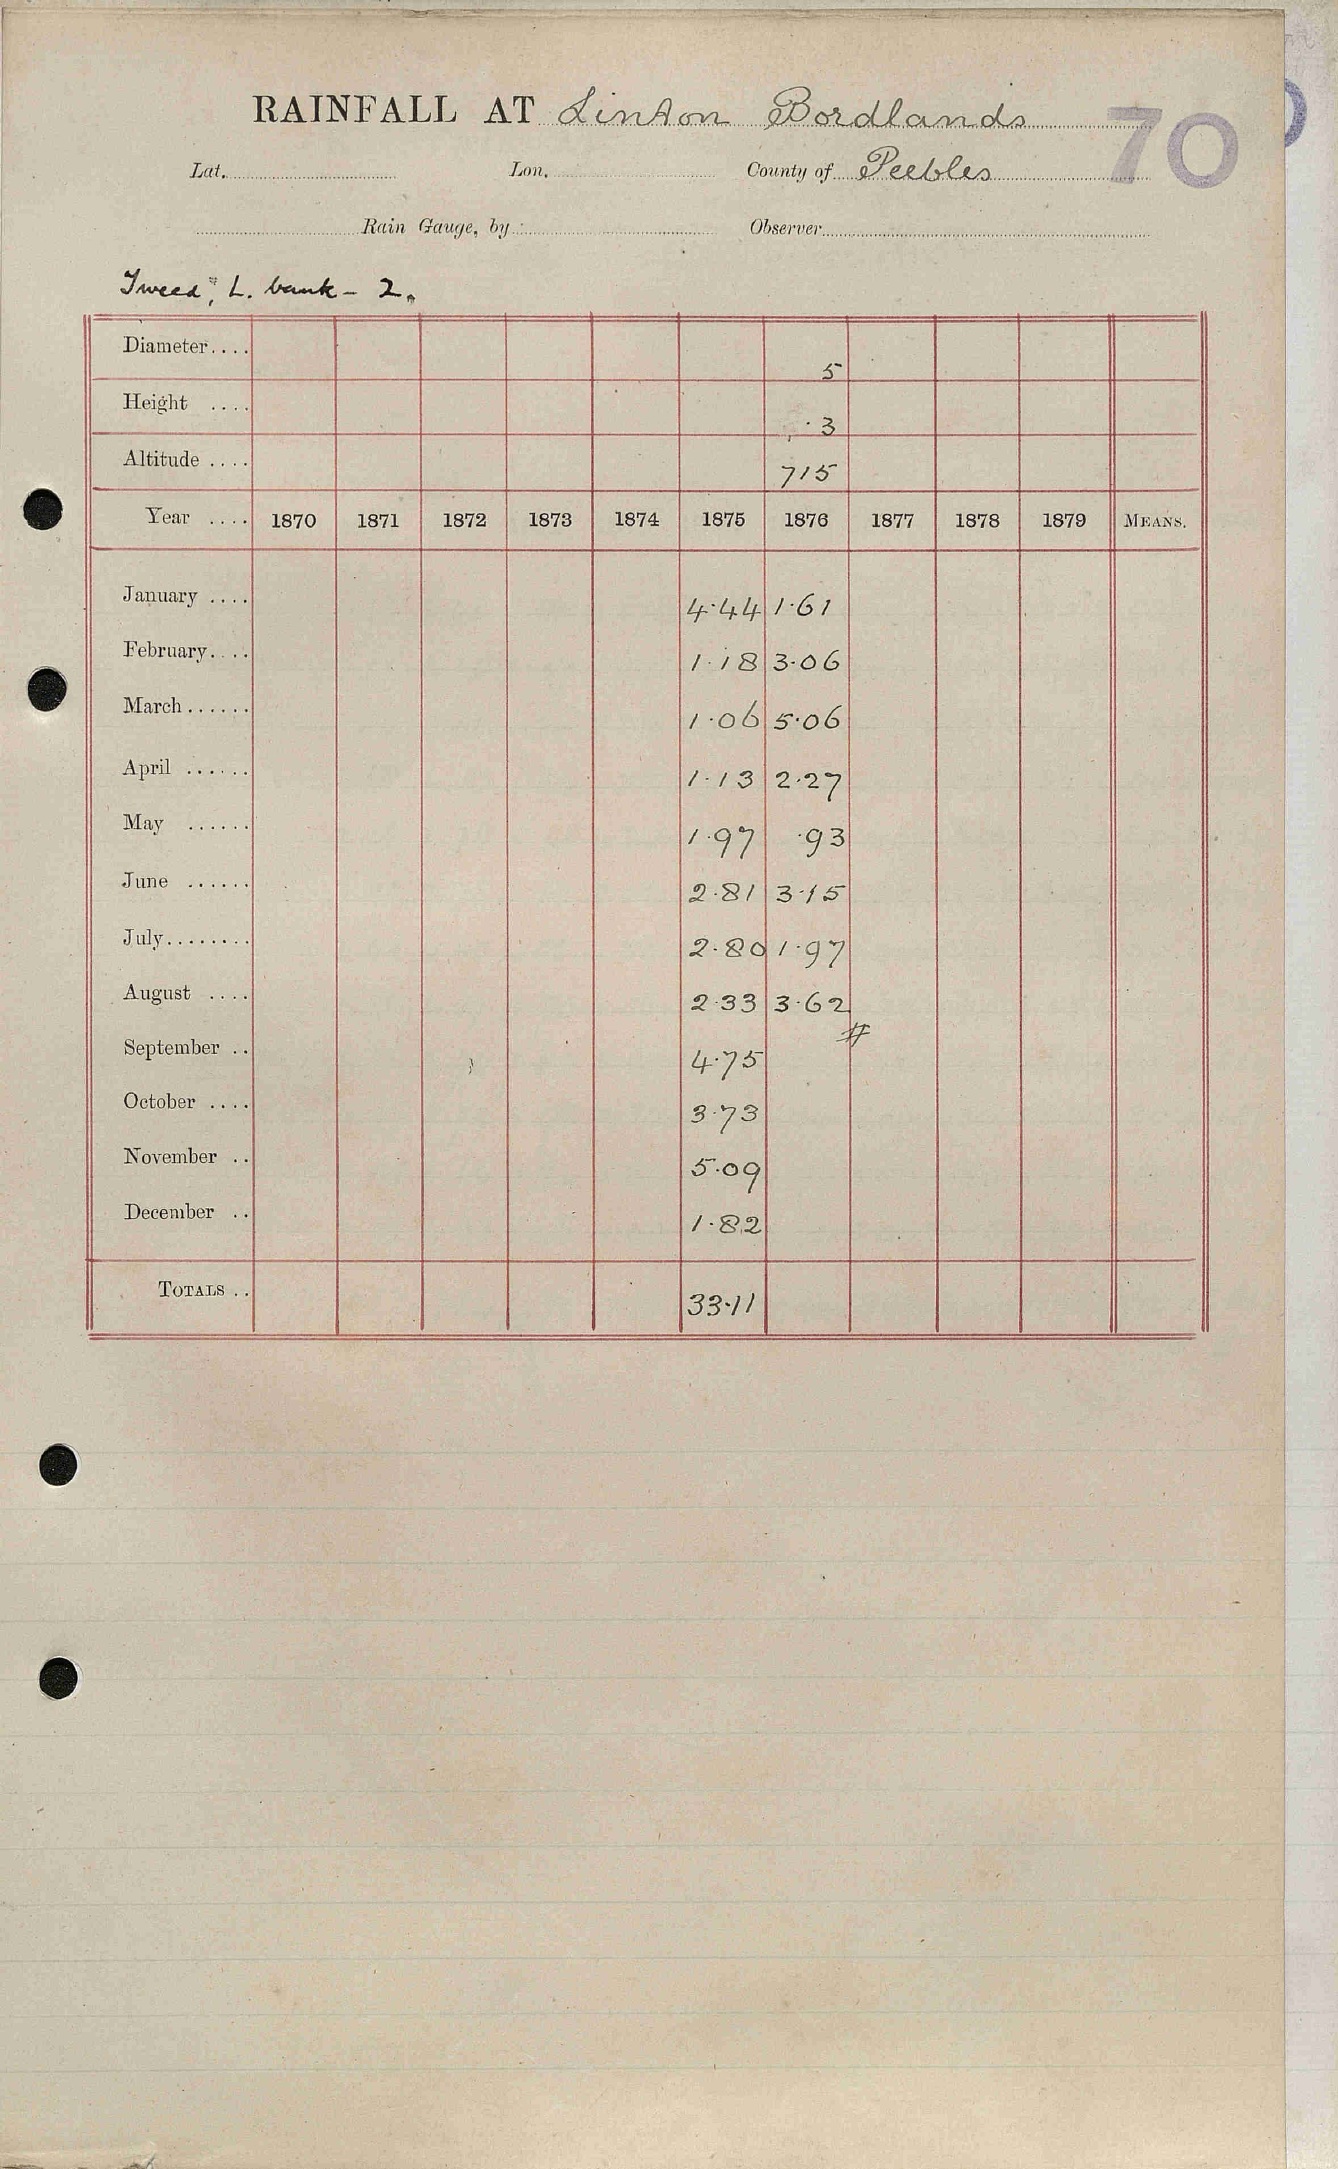 RAINFALL AT Linton Bordlands 70
Lat. Lon. County of Peebles
Rain Gauge, by Observer
Tweed, L. bank - 2.
Diameter.... 5
Height .... ·3
Altitude .... 715
Year .... 1870 1871 1872 1873 1874 1875 1876 1877 1878 1879 MEANS.
January .... 4·44 1·61
February.... 1·18 3·06
March...... 1·06 5·06
April ...... 1·13 2·27
May ...... 1·97 ·93
June ...... 2·81 3·15
July........ 2·80 1·97
August .... 2·33 3·62
#
September .. 4·75
October .... 3·73
November .. 5·09
December .. 1·82
TOTALS .. 33·11